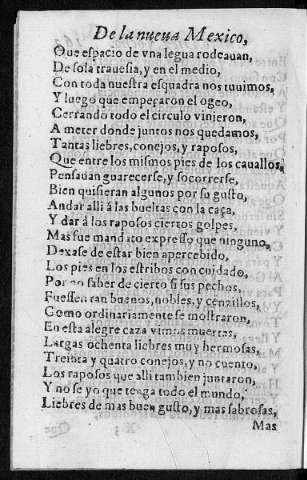 De la nueua Mexico,
Que espacio de vna legua rodeauan,
De sola trauesia, y en el medio,
Con toda nuestra esquadra nos tuuimos,
Y luego que empeçaron el ogeo,
Cerrando todo el circulo vinieron,
A meter donde juntos nos quedamos,
Tantas liebres, conejos, y raposos,
Que entre los mismos pies de los cauallos,
Pensauan guarecerse, y socorrerse,
Bien quisieran algunos por su gusto,
Andar alli â las bueltas con la caça,
Y dar â los raposos ciertos golpes,
Mas fue mandato expresso que ninguno,
Dexase de estar bien apercebido,
Los pies en los estribos con cuidado,
Por no saber de cierto si sus pechos,
Fuessen tan buenos, nobles, y cenzillos,
Como ordinariamente se mostraron,
En esta alegre caza vimos muertas,
Largas ochenta liebres muy hermosas,
Treinta y quatro conejos, y no cuento,
Los raposos que alli tambien juntaron,
Y no se yo que tenga todo el mundo,
Liebres de mas buen gusto, y mas sabrosas,
Mas